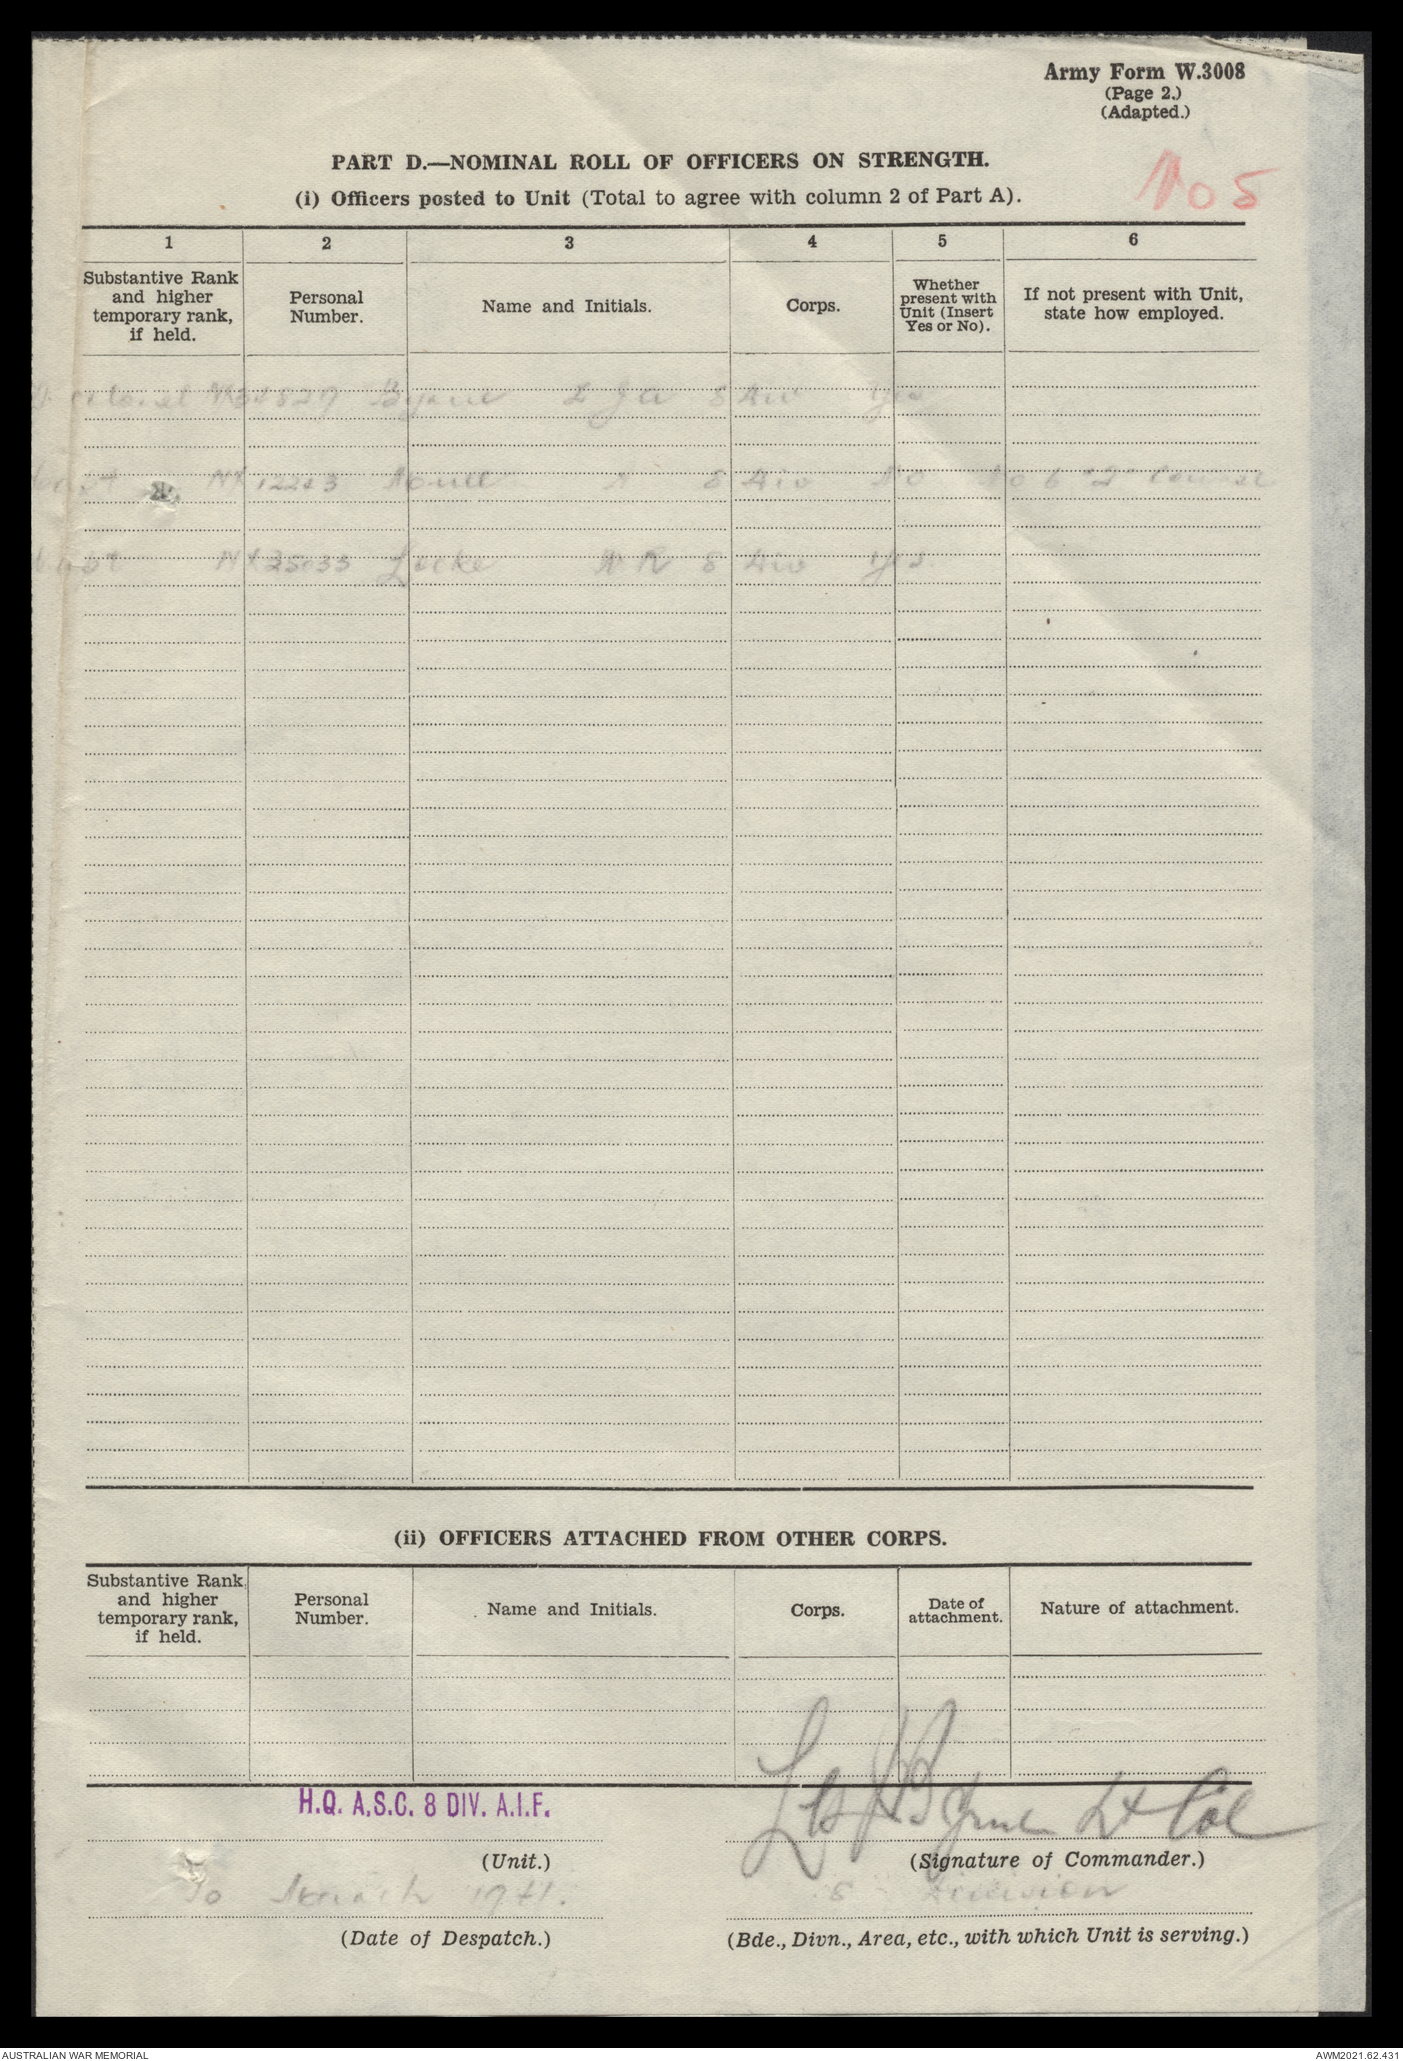 Army Form W.3008
(Page 2.)
(Adapted.)
PART D.—NOMINAL ROLL OF OFFICERS ON STRENGTH.
No 5
(i) Officers posted to Unit (Total to agree with column 2 of Part A).
1 2 3 4 5 6
Substantive Rank and higher temporary rank, if held.
Personal Number.
Name and Initials.
Corps.
Whether present with Unit (Insert Yes or No).
If not present with Unit, state how employed.
Byrne L J A 8 Div Yes
Capt NX 8 Div No No 6 "Q" Course
Capt NX35033 Locke W R 8 Div Yes
(ii) OFFICERS ATTACHED FROM OTHER CORPS.
Substantive Rank and higher temporary rank, if held.
Personal Number.
Name and Initials.
Corps.
Date of attachment.
Nature of attachment.
H.Q. A.S.C. 8 DIV. A.I.F.
Byrne Lt Col
(Unit.)
(Signature of Commander.)
March 1941.
8 Division
(Date of Despatch.)
(Bde., Divn., Area, etc., with which Unit is serving.)
AUSTRALIAN WAR MEMORIAL
AWM2021.62.431